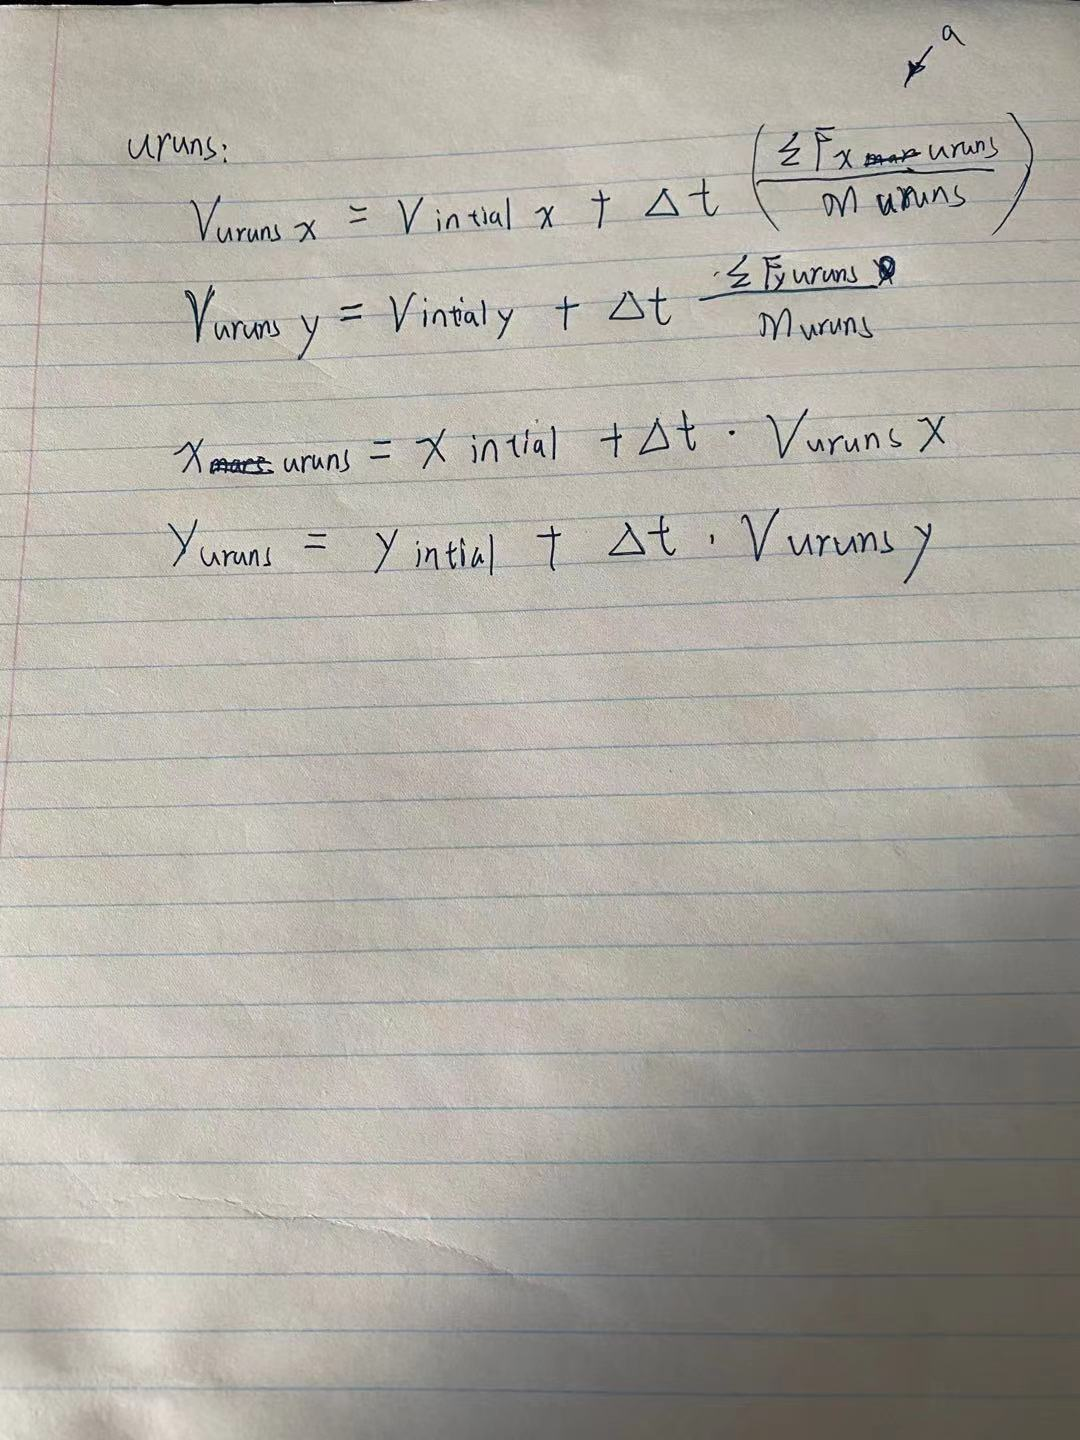 a
uruns:
Vuruns x = V intial x + Δt (ΣFx uruns / m uruns)
Vuruns y = Vintial y + Δt ΣFy uruns / Muruns
x uruns = x intial + Δt · Vuruns x
yuruns = y intial + Δt · Vuruns y